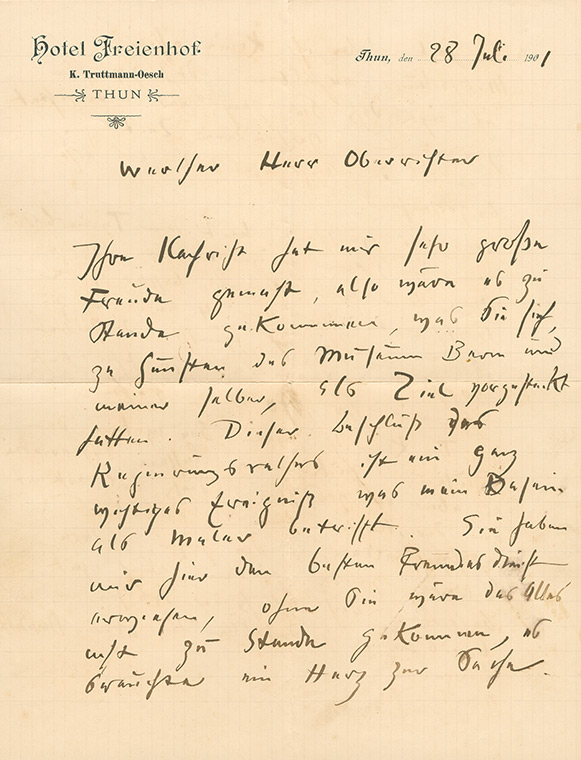 Hotel Freienhof.
K. Truttmann-Oesch
THUN
Thun, den 28 Juli 1901
Werther Herr Oberrichter
Ihre Nachricht hat mir sehr große
Freude gemacht, also wäre es zu
Stande gekommen, was Sie sich,
zu Gunsten des Museum Bern und
meiner selber, als Ziel vorgesteckt
hatten. Dieser Beschluß des
Regierungsrathes ist ein ganz
wichtiges Ereigniß was mein Dasein
als Maler betrifft. Sie haben
mir hier den besten Freundesdienst
erwiesen, ohne Sie wäre das Alles
nicht zu Stande gekommen, es
brauchte ein Herz zur Sache.